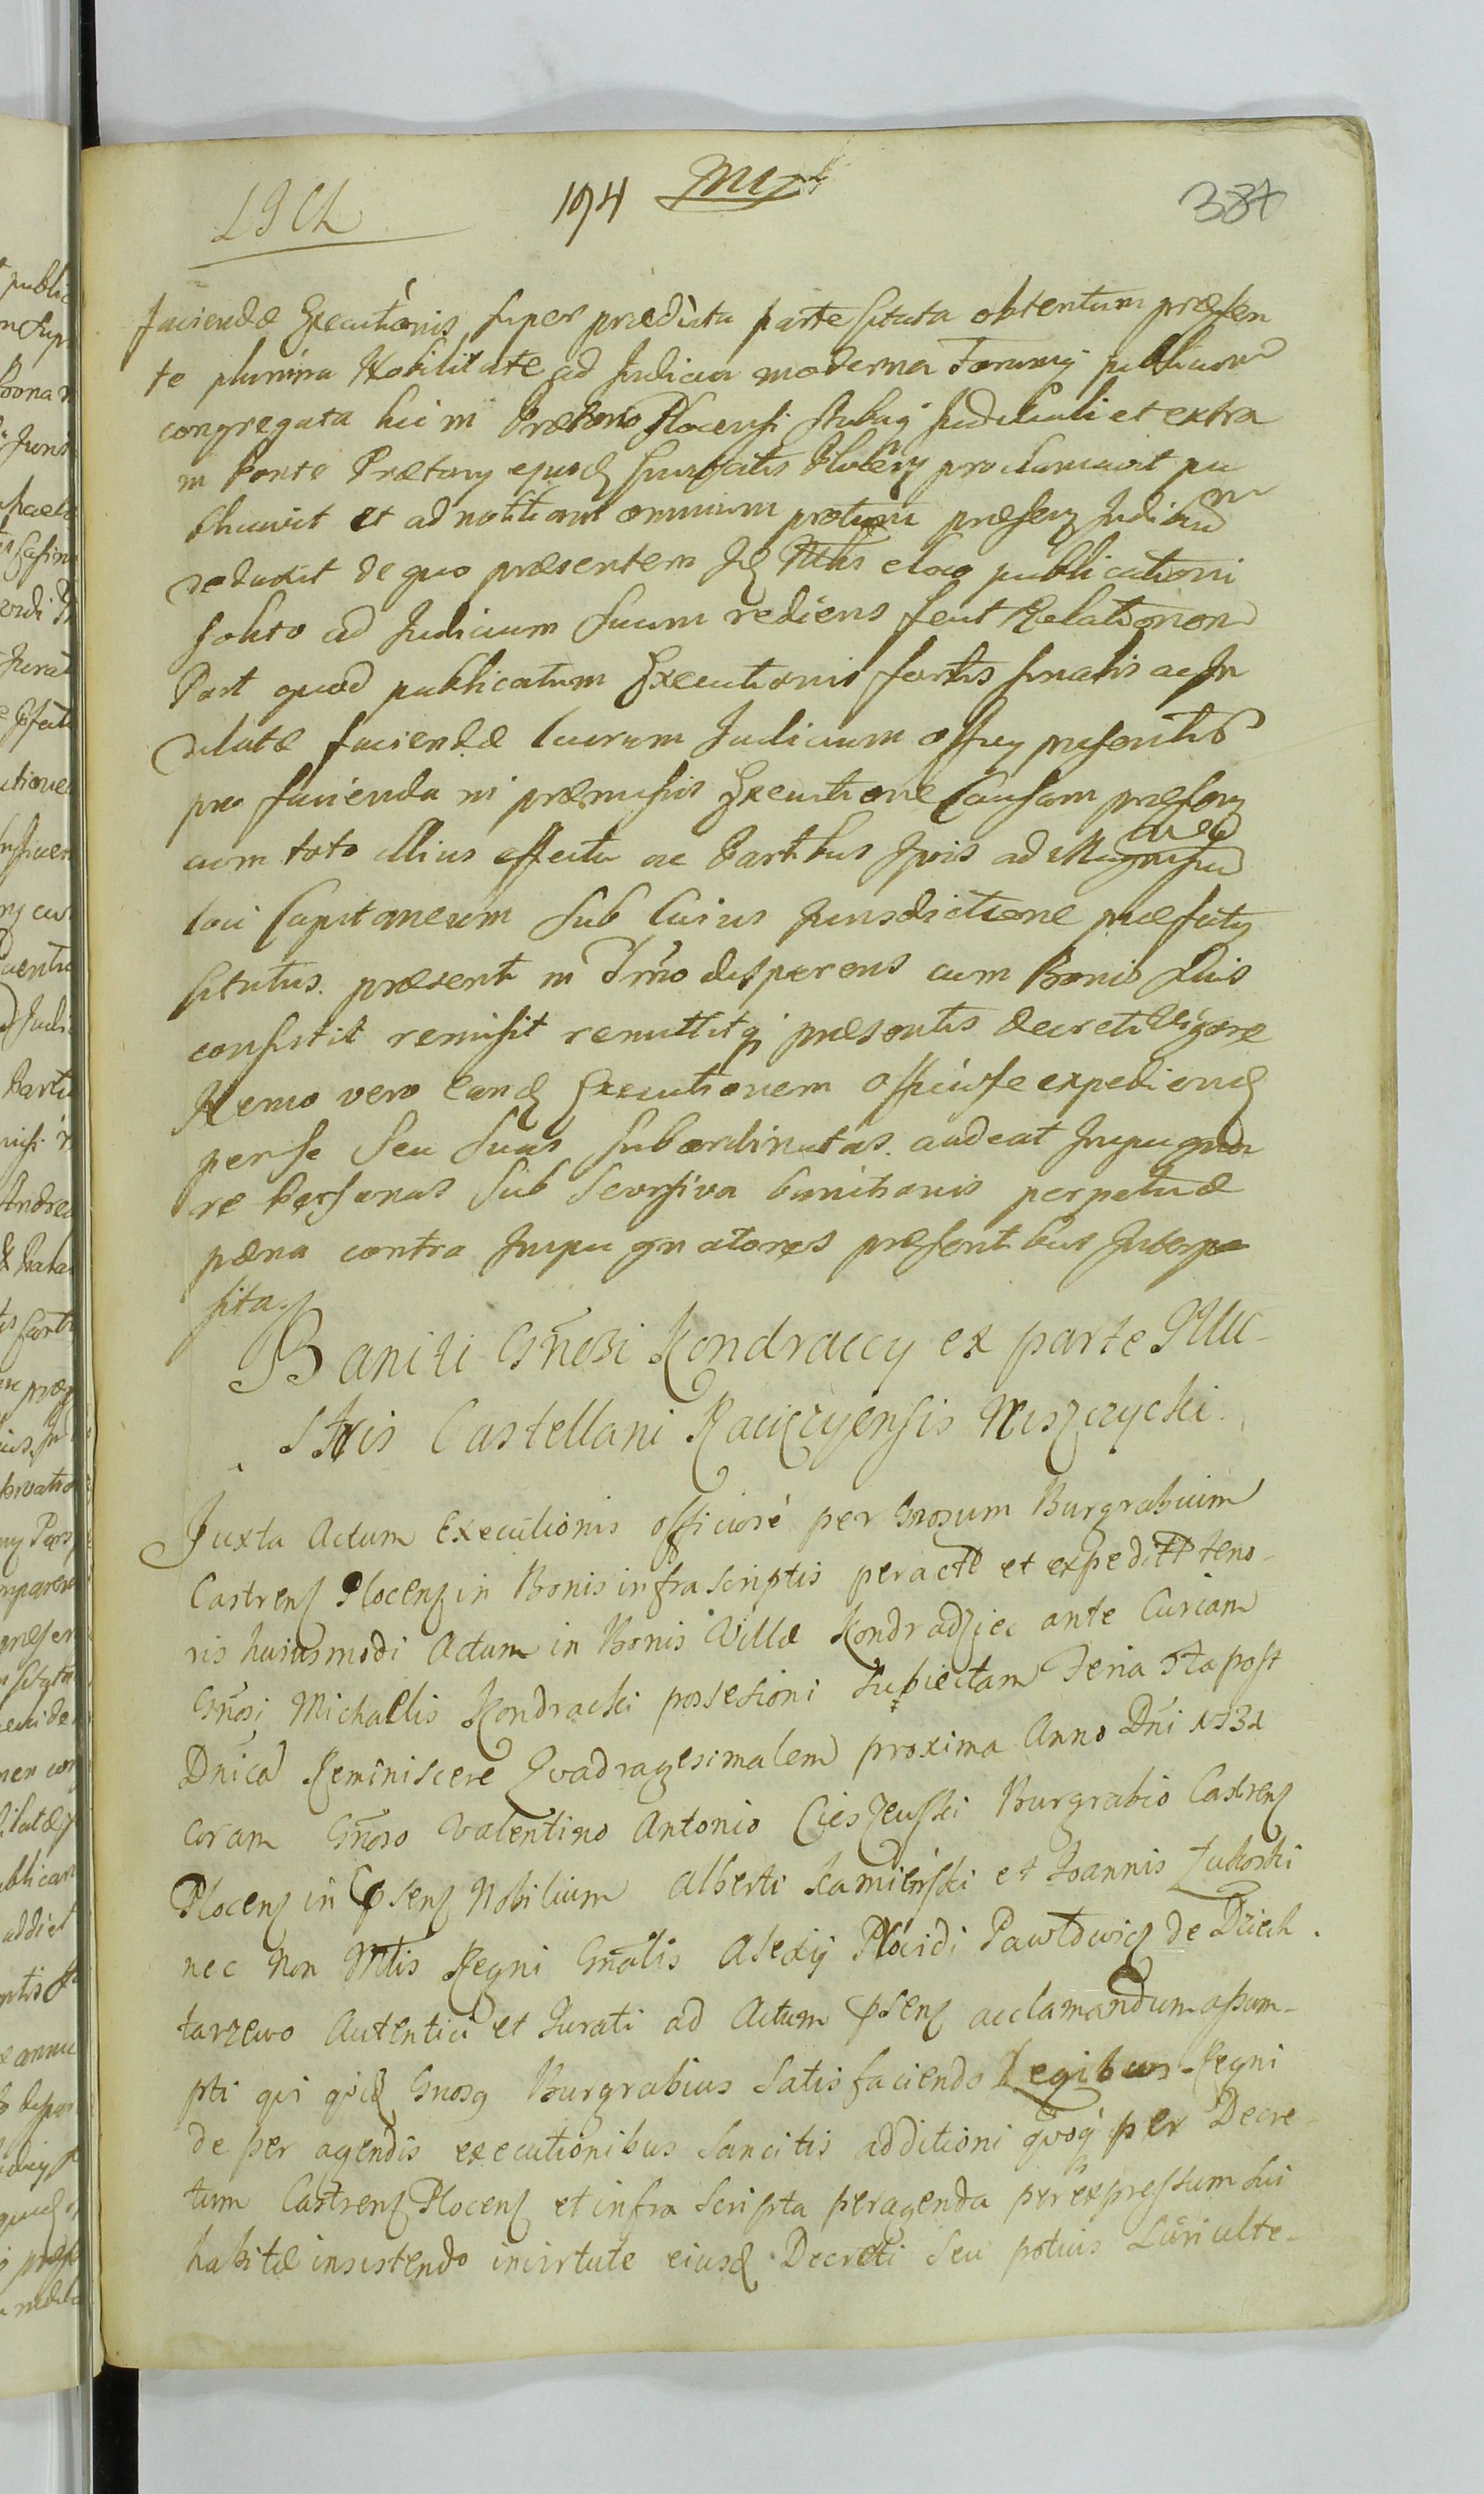 194
384
faciendæ Executionis super prædicta parte citata obtentum præsen
te plurima Nobilitate ad Judicia moderna publicum
congregata hic in Prætorio Plocensi Stubaq Judiciali et extra
in Ponte Prætory ejusd proclamavit pu
blicavit et ad notitiam omnium præsens
deduxit de quo præsentem eloco publicationi
solito ad Judicium suum rediens fecit Relationem
Post quod publicatum Executionis fortis finalis ac In
dilatæ faciendæ Causam Judicium præsentib
pro facienda in præmissis Executione Causam præsen
cum toto illius effectu ac Partibus Ipsis ad
loci Capitaneum sub Cuius Jurisdictione præfaty
citatus præsenti in Trmo disperens cum Bonis Suis
consistit remisit remittitq præsentis decreti Vigore
Nemo vero eand Executionem officiose expediend
per se Seu Suas subordinatas audeat Impugna
re Personas sub Seorsiva banitionis perpetuæ
pæna contra Impugnatores præsentibus Interpo
sita
Baniti Gnosi Kondraccy ex parte Illu-
stris Castellani Raciązyensis Niszczycki
Juxta Actum Executionis officiosè per Gnosum Burgrabium
Castrens Plocens in Bonis infrascriptis peractæ et expeditæ teno-
ris huiusmodi Actum in Bonis Villæ Kondradziec ante Curiam
Gnosi Michaelis Kondracki possesioni subiectam Feria 5ta post
Dnicā Reminiscere Quadragesimalem proxima Anno Dni 1731
coram Gnoso Valentino Antonio Cieszewski Burgrabio Castrens
Plocens in psens Nobilium Alberti Kamieński et Joannis Zukoski
nec non Mtis Regni Gnalis Alexÿ Placidi Pawłowicz de Dziech
tarzewo Autentici et Jurati ad Actum psens acclamandum assum-
pti qui quid Gnosq Burgrabius Satisfaciendo Legibus Regni
de per agendis executionibus Sancitis additioni quoq per Decre-
tum Castrens Plocens et infra Scripta peragenda per expressum sui
habitæ insistendo invirtute eiusd Decreti Seu potius